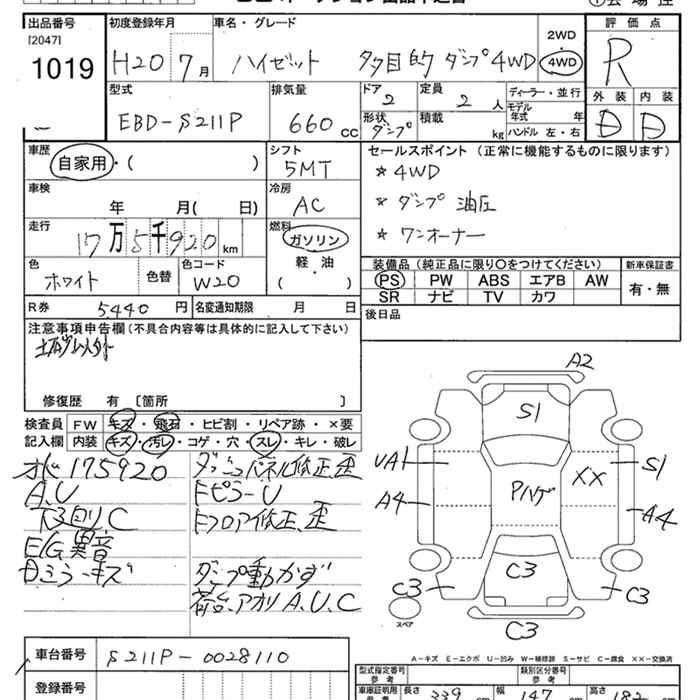 出品番号
[2047]
1019
初度登録年月
H20 7月
車名・グレード
ハイゼット 多目的 ダンプ 4WD
2WD
・
4WD
評価点
R
外装 内装
D D
型式
EBD-S211P
排気量
660 cc
ドア 2
形状 ダンプ
定員 2 人
積載 kg
ディーラー・並行
モデル年式 年
ハンドル 左・右
車歴
自家用・( )
シフト
5MT
車検
年 月( 日)
冷房
AC
走行
17万5千920km
燃料
ガソリン
軽・油
( )
色
ホワイト 色替
色コード
W20
R券 5440円
名変通知期限 月 日
セールスポイント(正常に機能するものに限ります)
* 4WD
* ダンプ 油圧
* ワンオーナー
装備品(純正品に限り○をつけてください)
PS PW ABS エアB AW
SR ナビ TV カワ
新車保証書
有・無
後日品
注意事項申告欄(不具合内容等は具体的に記入して下さい)
修復歴 有〔箇所 〕
検査員記入欄
FW キズ・飛石・ヒビ割・リペア跡・×要
内装 キズ・汚レ・コゲ・穴・スレ・キレ・破レ
オドメ 175920
A.U
下廻りC
E/G異音
Dミラーキズ
ダッシュパネル修正、歪
FピラーU
Fフロア修正、歪
ダンプ動かず
荷台、アオリ A.U.C
A2
S1
UA1
S1
XX
Pハゲ
A4
A4
C3
C3
C3
C3
スペア
A-キズ E-エクボ U-凹み W-補修跡 S-サビ C-腐食 ××-交換済
車台番号 S211P-0028110
登録番号
型式指定番号
類別区分番号
車庫証明用
長さ 339 cm
幅 147 cm
高さ 182 cm